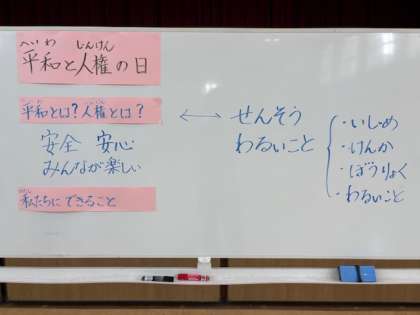 へいわ じんけん
平和と人権の日
平和とは?人権とは?
安全 安心
みんなが楽しい
私たちにできること
↔ せんそう
わるいこと
・いじめ
・けんか
・ぼうりょく
・わるいこと